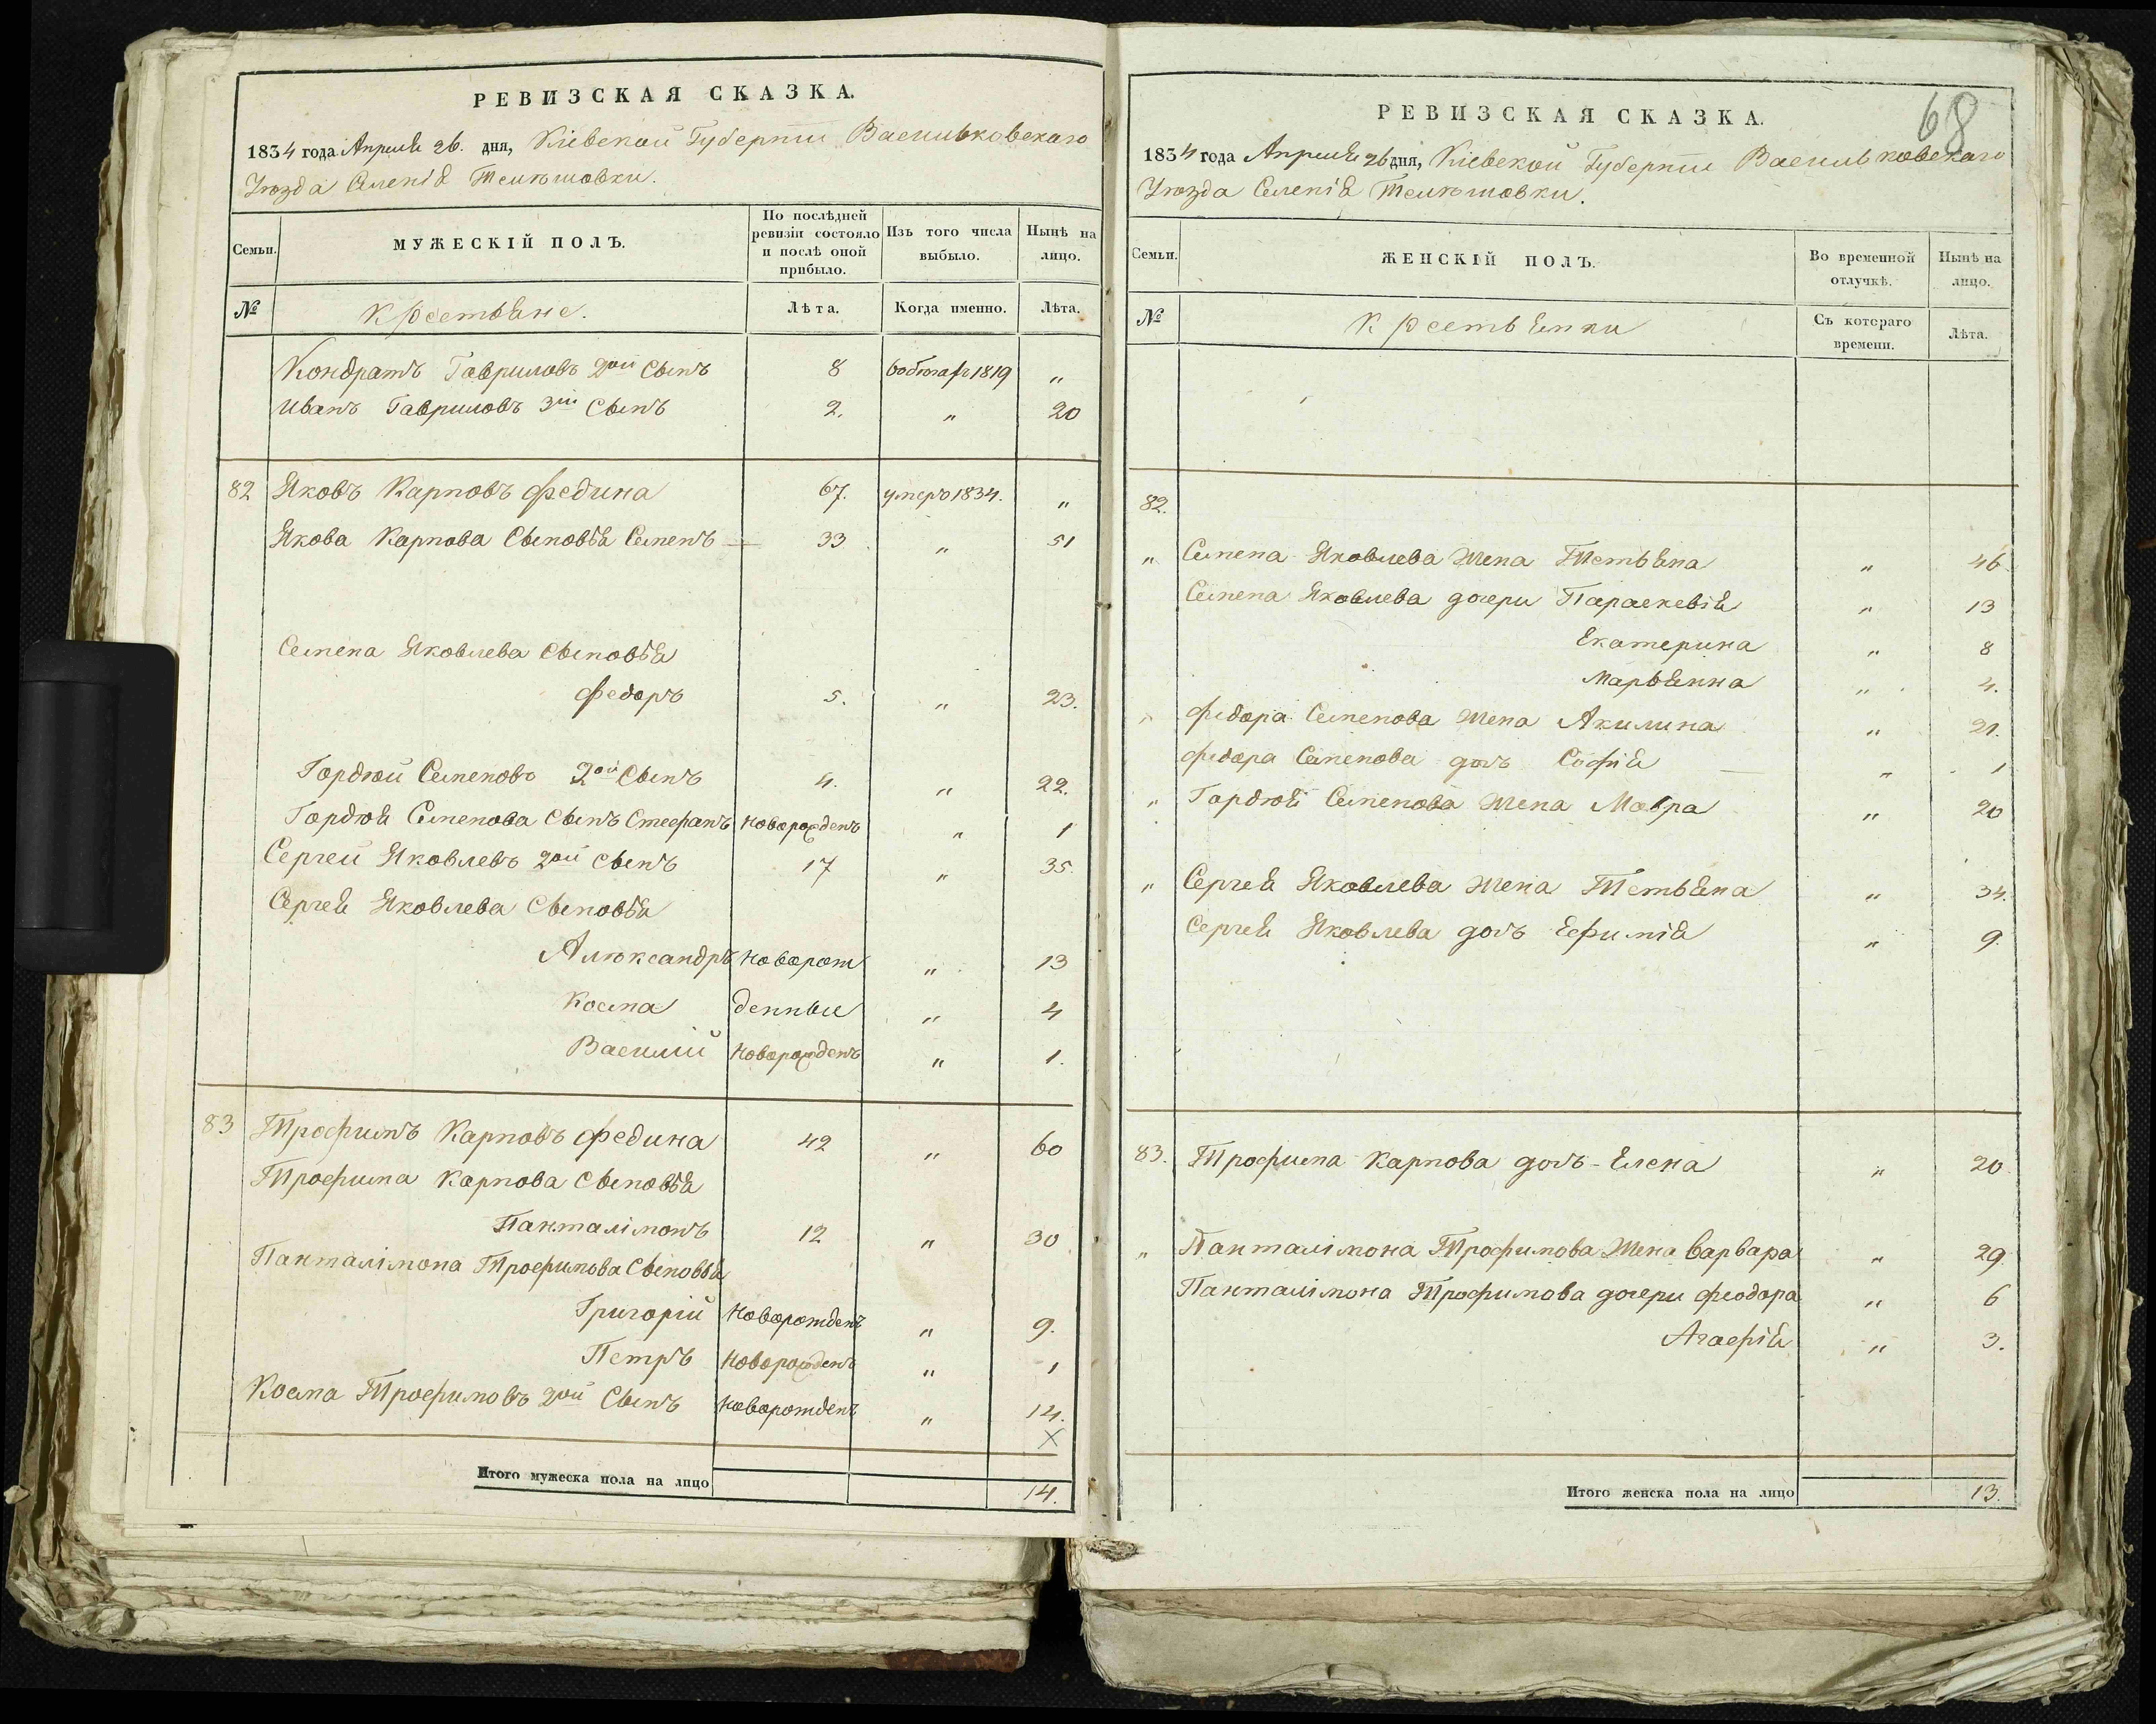 РЕВИЗСКАЯ СКАЗКА.
1834 года Апреля 26. дня, Кіевской Губерніи Васильковскаго
Уезда Селенія Телешовки.
Семьи.
МУЖЕСКІЙ ПОЛЪ.
По послѣдней ревизіи состояло и послѣ оной прибыло.
Изъ того числа выбыло.
Нынѣ на лицо.
№
Крестьяне.
Лѣта.
Когда именно.
Лѣта.
Кондратъ Гавриловъ 2ой Сынъ 8 1819 „
Иванъ Гавриловъ 3ій Сынъ 2. „ 20
82 Яковъ Карповъ Федина 67. умеръ 1834. „
Якова Карпова Сыновья Семенъ — 33 „ 51
Семена Яковлева Сыновья
Федоръ 5. „ 23.
Гордей Семеновъ 2ой Сынъ 4. „ 22.
Гордея Семенова Сынъ Стефанъ новорожденъ „ 1
Сергей Яковлевъ 2ой Сынъ 17 „ 35.
Сергея Яковлева Сыновья
Александръ новорож „ 13
Косма денные „ 4
Василій новорожденъ „ 1.
83 Трофимъ Карповъ Федина 42 „ 60
Трофима Карпова Сыновья
Панталімонъ 12 „ 30
Панталімона Трофимова Сыновья
Григорій новорожденъ „ 9.
Петръ новорожденъ „ 1
Косма Трофимовъ 2ой Сынъ новорожденъ „ 14.
X
Итого мужеска пола на лицо 14.
68
РЕВИЗСКАЯ СКАЗКА.
1834 года Апреля 26 дня, Кіевской Губерніи Васильковскаго
Уезда Селенія Телешовки.
Семьи.
ЖЕНСКІЙ ПОЛЪ.
Во временной отлучкѣ.
Нынѣ на лицо.
№
Крестьянки
Съ котораго времени.
Лѣта.
82.
„ Семена Яковлева Жена Тетьяна „ 46
Семена Яковлева дочери Параскевія „ 13
Екатерина „ 8
Марьянна „ 4.
„ Федора Семенова Жена Акилина „ 21.
Федора Семенова дочь София — „ 1
„ Гордея Семенова Жена Мавра „ 20
„ Сергея Яковлева Жена Тетьяна „ 34.
Сергея Яковлева дочь Ефимія „ 9
83. Трофима Карпова дочь - Елена „ 20
„ Панталімона Трофимова Жена Варвара „ 29
Панталімона Трофимова дочери Феодора „ 6
Агафія „ 3.
Итого женска пола на лицо 13.